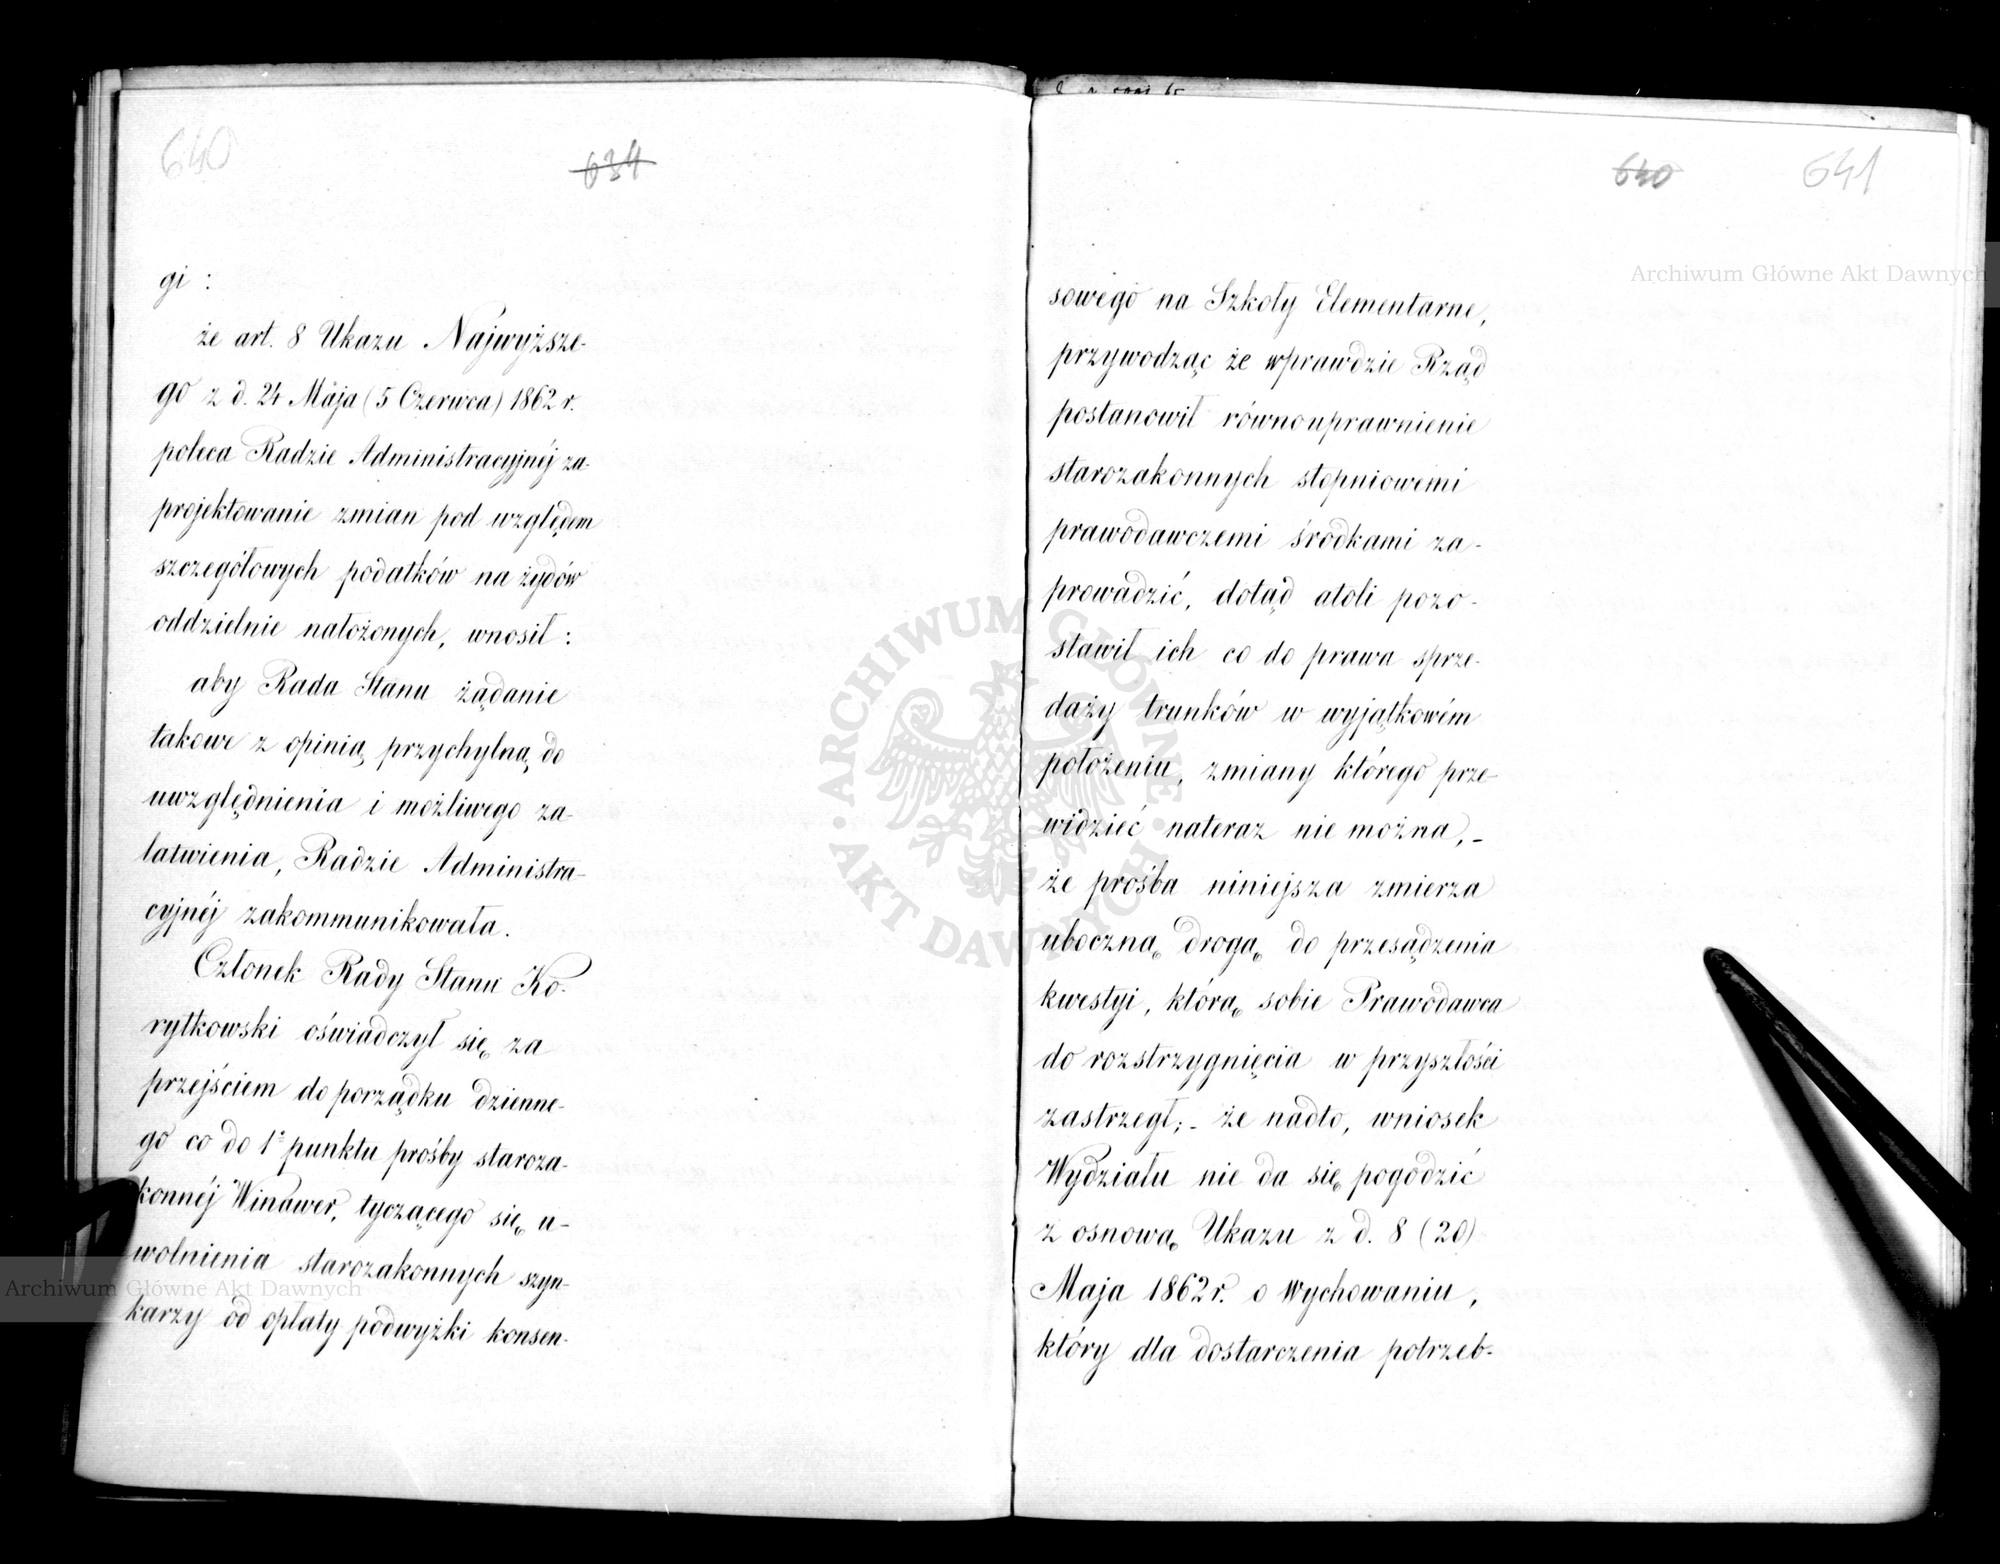 640
634
gi :
że art. 8 Ukazu Najwyższe-
go z d. 24 Maja (5 Czerwca) 1862 r.
poleca Radzie Administracyjnéj za-
projektowanie zmian pod względem
szczegółowych podatków na żydów
oddzielnie nałożonych, wnosił:
aby Rada Stanu żądanie
takowe z opinią przychylną do
uwzględnienia i możliwego za-
łatwienia, Radzie Administra-
cyjnéj zakommunikowała.
Członek Rady Stanu Ko-
rytkowski oświadczył się za
przejściem do porządku dzienne-
go co do 1º punktu prośby staroza-
konnéj Winawer, tyczącego się u-
wolnienia starozakonnych szyn-
karzy od opłaty podwyżki konsen-
640 641
sowego na Szkoły Elementarne,
przywodząc że wprawdzie Rząd
postanowił równouprawnienie
starozakonnych stopniowemi
prawodawczemi środkami za-
prowadzić, dotąd atoli pozo-
stawił ich co do prawa sprze-
daży trunków w wyjątkowém
położeniu, zmiany którego prze-
widzieć nateraz nie można, -
że prośba niniejsza zmierza
uboczną drogą do przesądzenia
kwestyi, którą sobie Prawodawca
do rozstrzygnięcia w przyszłości
zastrzegł; - że nadto, wniosek
Wydziału nie da się pogodzić
z osnową Ukazu z d. 8 (20)
Maja 1862 r. o Wychowaniu,
który dla dostarczenia potrzeb-
Archiwum Główne Akt Dawnych
Archiwum Główne Akt Dawnych
ARCHIWUM GŁÓWNE · AKT DAWNYCH ·